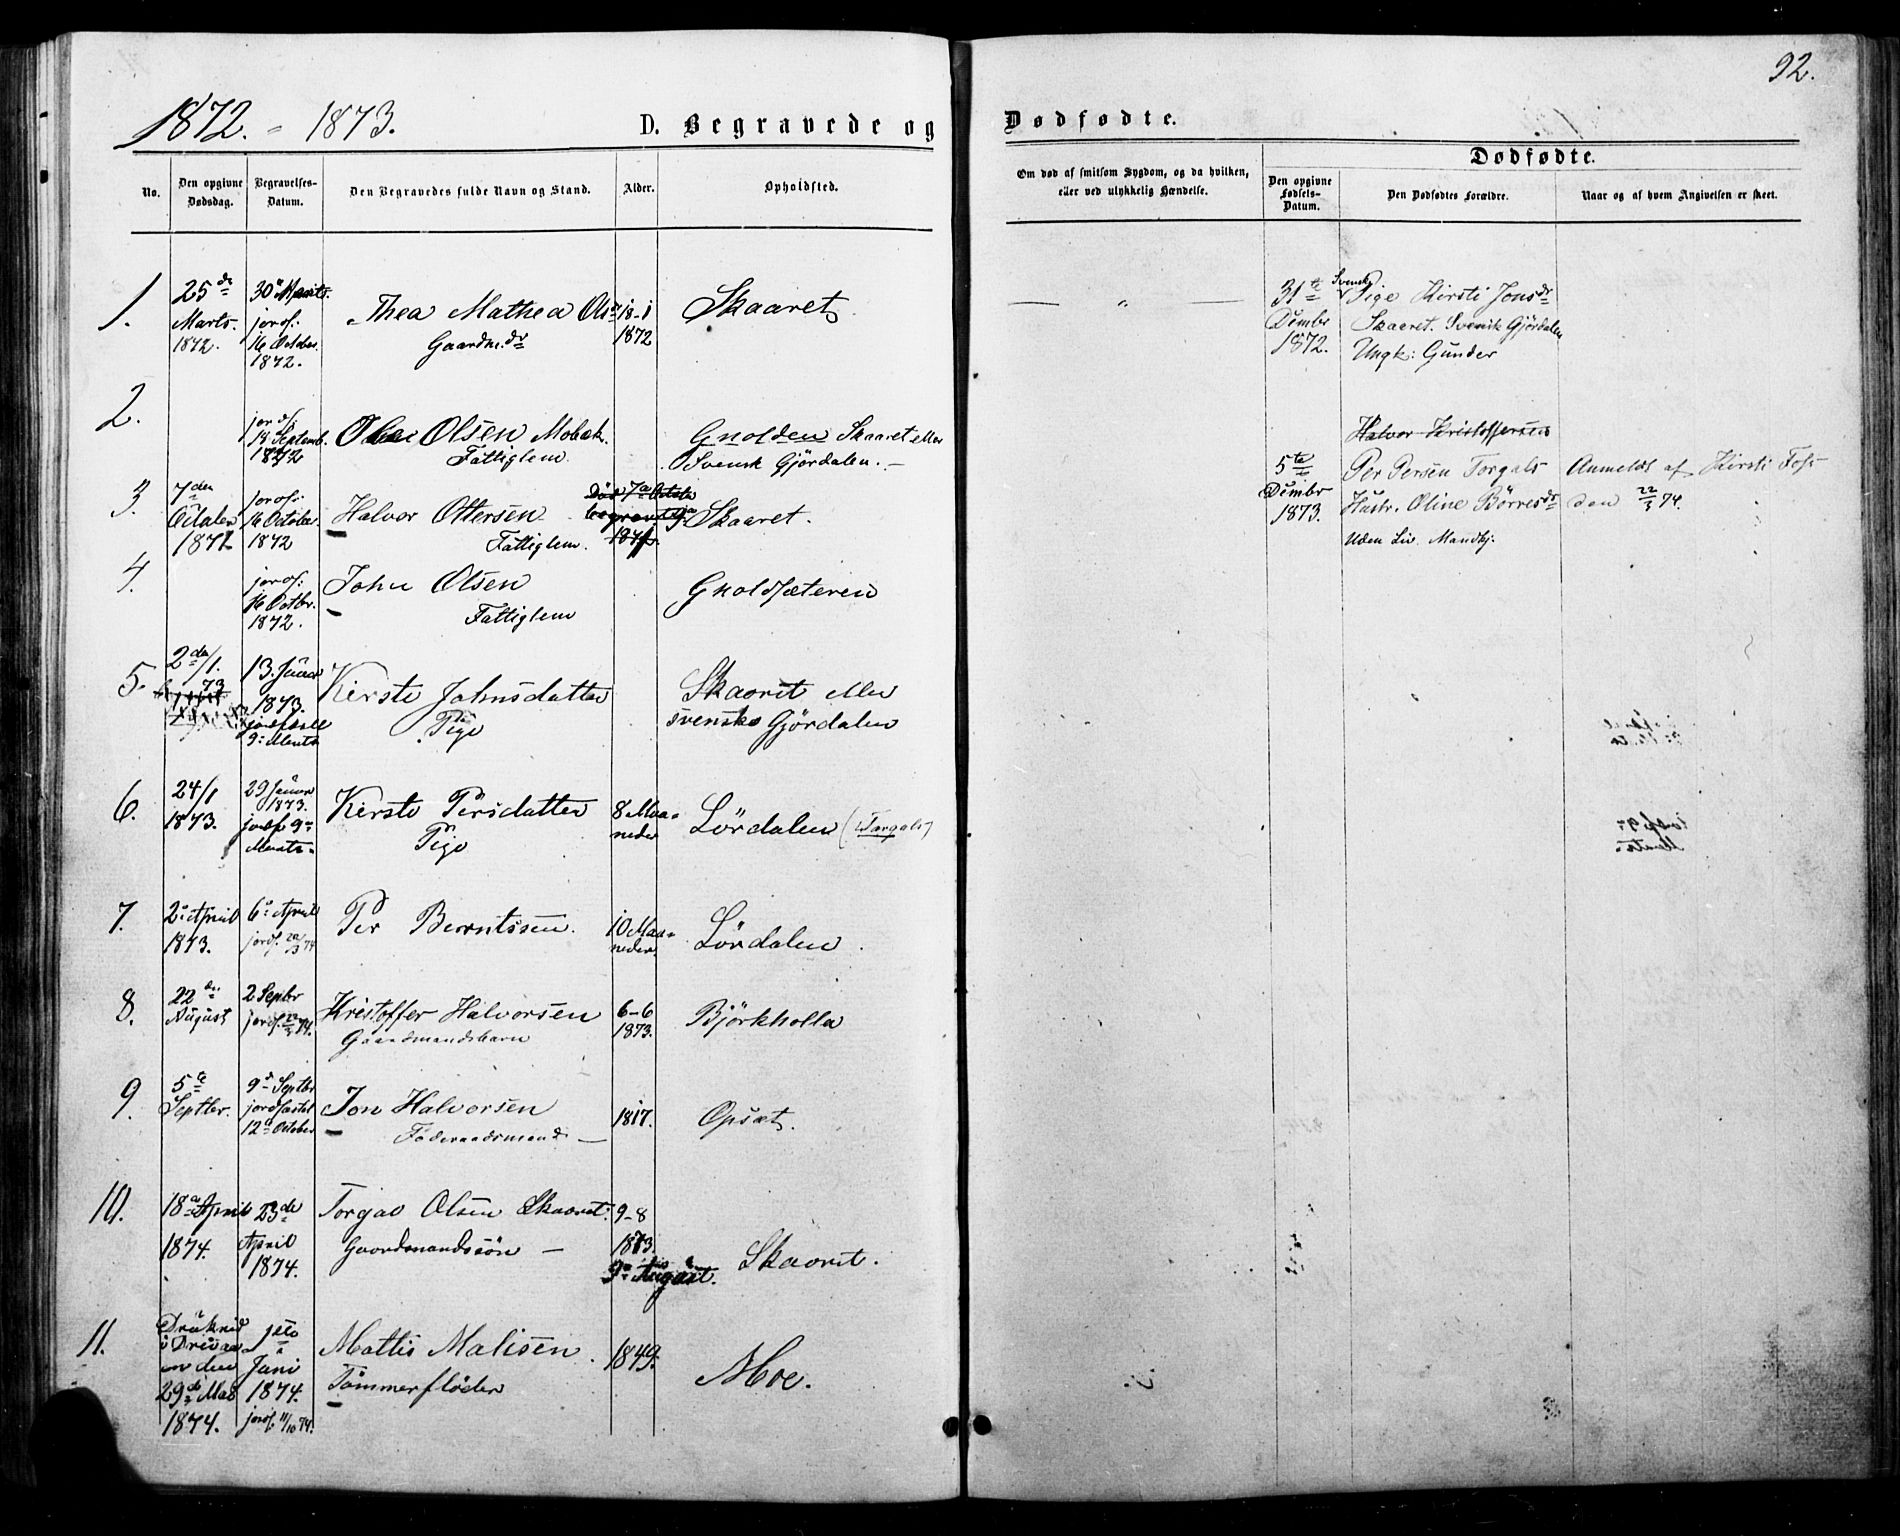 92.
1872. - 1873.
D. Begravede og
Dødfødte.
No.
Den opgivne Dødsdag.
Begravelses-Datum.
Den Begravedes fulde Navn og Stand.
Alder.
Opholdsted.
Om død af smitsom Sygdom, og da hvilken, eller ved ulykkelig Hændelse.
Dødfødte.
Den opgivne Fødsels-Datum.
Den Dødfødtes Forældre.
Naar og af hvem Angivelsen er skeet.
1.
25de
Marts.
1872.
30 Marts.
jordf:
16 October
1872.
Thea Mathea Ols
Gaardm. dr
18-1
1872
Skaaret
2.
jordf
18 Septemb.
1872
Olsen Mobæk.
Fattiglem.
Gnolden Skaaret eller
Svensk Gjørdalen. -
3.
7den
1872
jordf:
16 October
1872
Halvor Ottersen
Fattiglem.
Død 7de
begravet
Skaaret.
4.
jordf:
16 Octbr.
1872.
John Olsen
Fattiglem
Gnoldsæteren
5.
2den/1.
73
13. Januar
1873.
jordfæstet
9de Marts
Kirsti Johnsdatter
Pige
Skaaret eller
svenske Gjørdalen
6.
24/1
1873.
29 Januar
1873.
jordf 9de
Marts.
Kirsti Persdatter
Pige
8 Maa-
neder
Lørdalen (Torgals)
7.
2 April
1873.
6 April
jordf. 22/3 74
Per Berntssen.
10 Maa-
neder.
Lørdalen.
8.
22de
August
2 Septbr
jordf. 22/3 74.
Kristoffer Halvorsen
Gaardmandsbarn
6-6
1873.
Björkholla
9.
5te
Septbr.
9de Septbr
jordfæstet
12te October
Jon Halvorsen
Föderaadsmand -
1817.
Opsæt.
10.
18de April
1874.
23de
April
1874.
Torgal Olsen Skaaret.
Gaardmandssön -
9-8
1873.
9de August.
Skaaret.
11.
Druknid
i
den
29de Mai
1874.
1ste
Juni
1874.
jordf. 11/10 74.
Mattis Malisen.
Tömmerflöder
1849.
Moe.
31te
Dcmbr
1872.
Svensk
Pige Kirsti Jonsdr
Skaaret. Svensk Gjördalen
Ungk: Gunder
Halvor Kristoffersen
5te
Dcmbr
1873.
Per Persen Torgals
Hustr. Oline Börresdr
Uden Liv. Mandkj.
Anmeldt af Kirsti Foss
den 22/3 74.